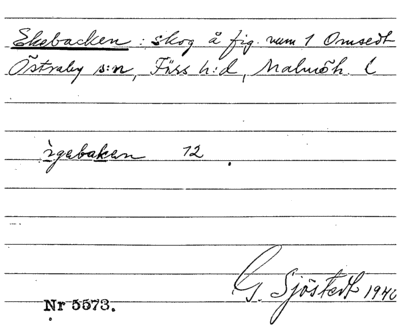 Ekebacken : skog å fig. num 1 Omsedt
Östraby s:n, Färs h:d, Malmöh. l
ìgebaken 12 .
G. Sjöstedt 1946
Nr 5573.